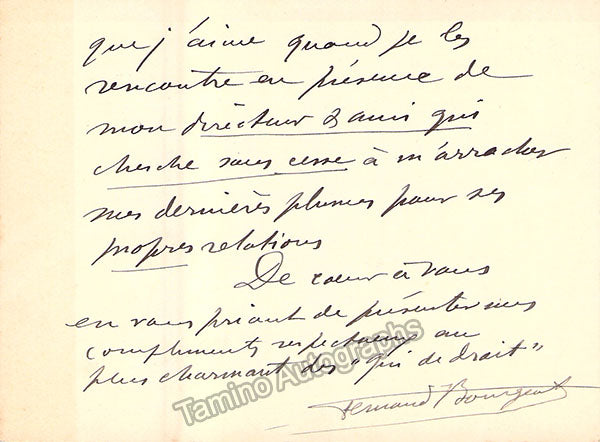 que j'aime quand je les
rencontre en présence de
mon directeur & ami qui
cherche sans cesse à m'arracher
mes dernières plumes pour ses
propres relations
De cœur à vous
en vous priant de présenter mes
compliments respectueux au
plus charmant des "qui de droit"
Fernand Bourgeat
Tamino Autographs